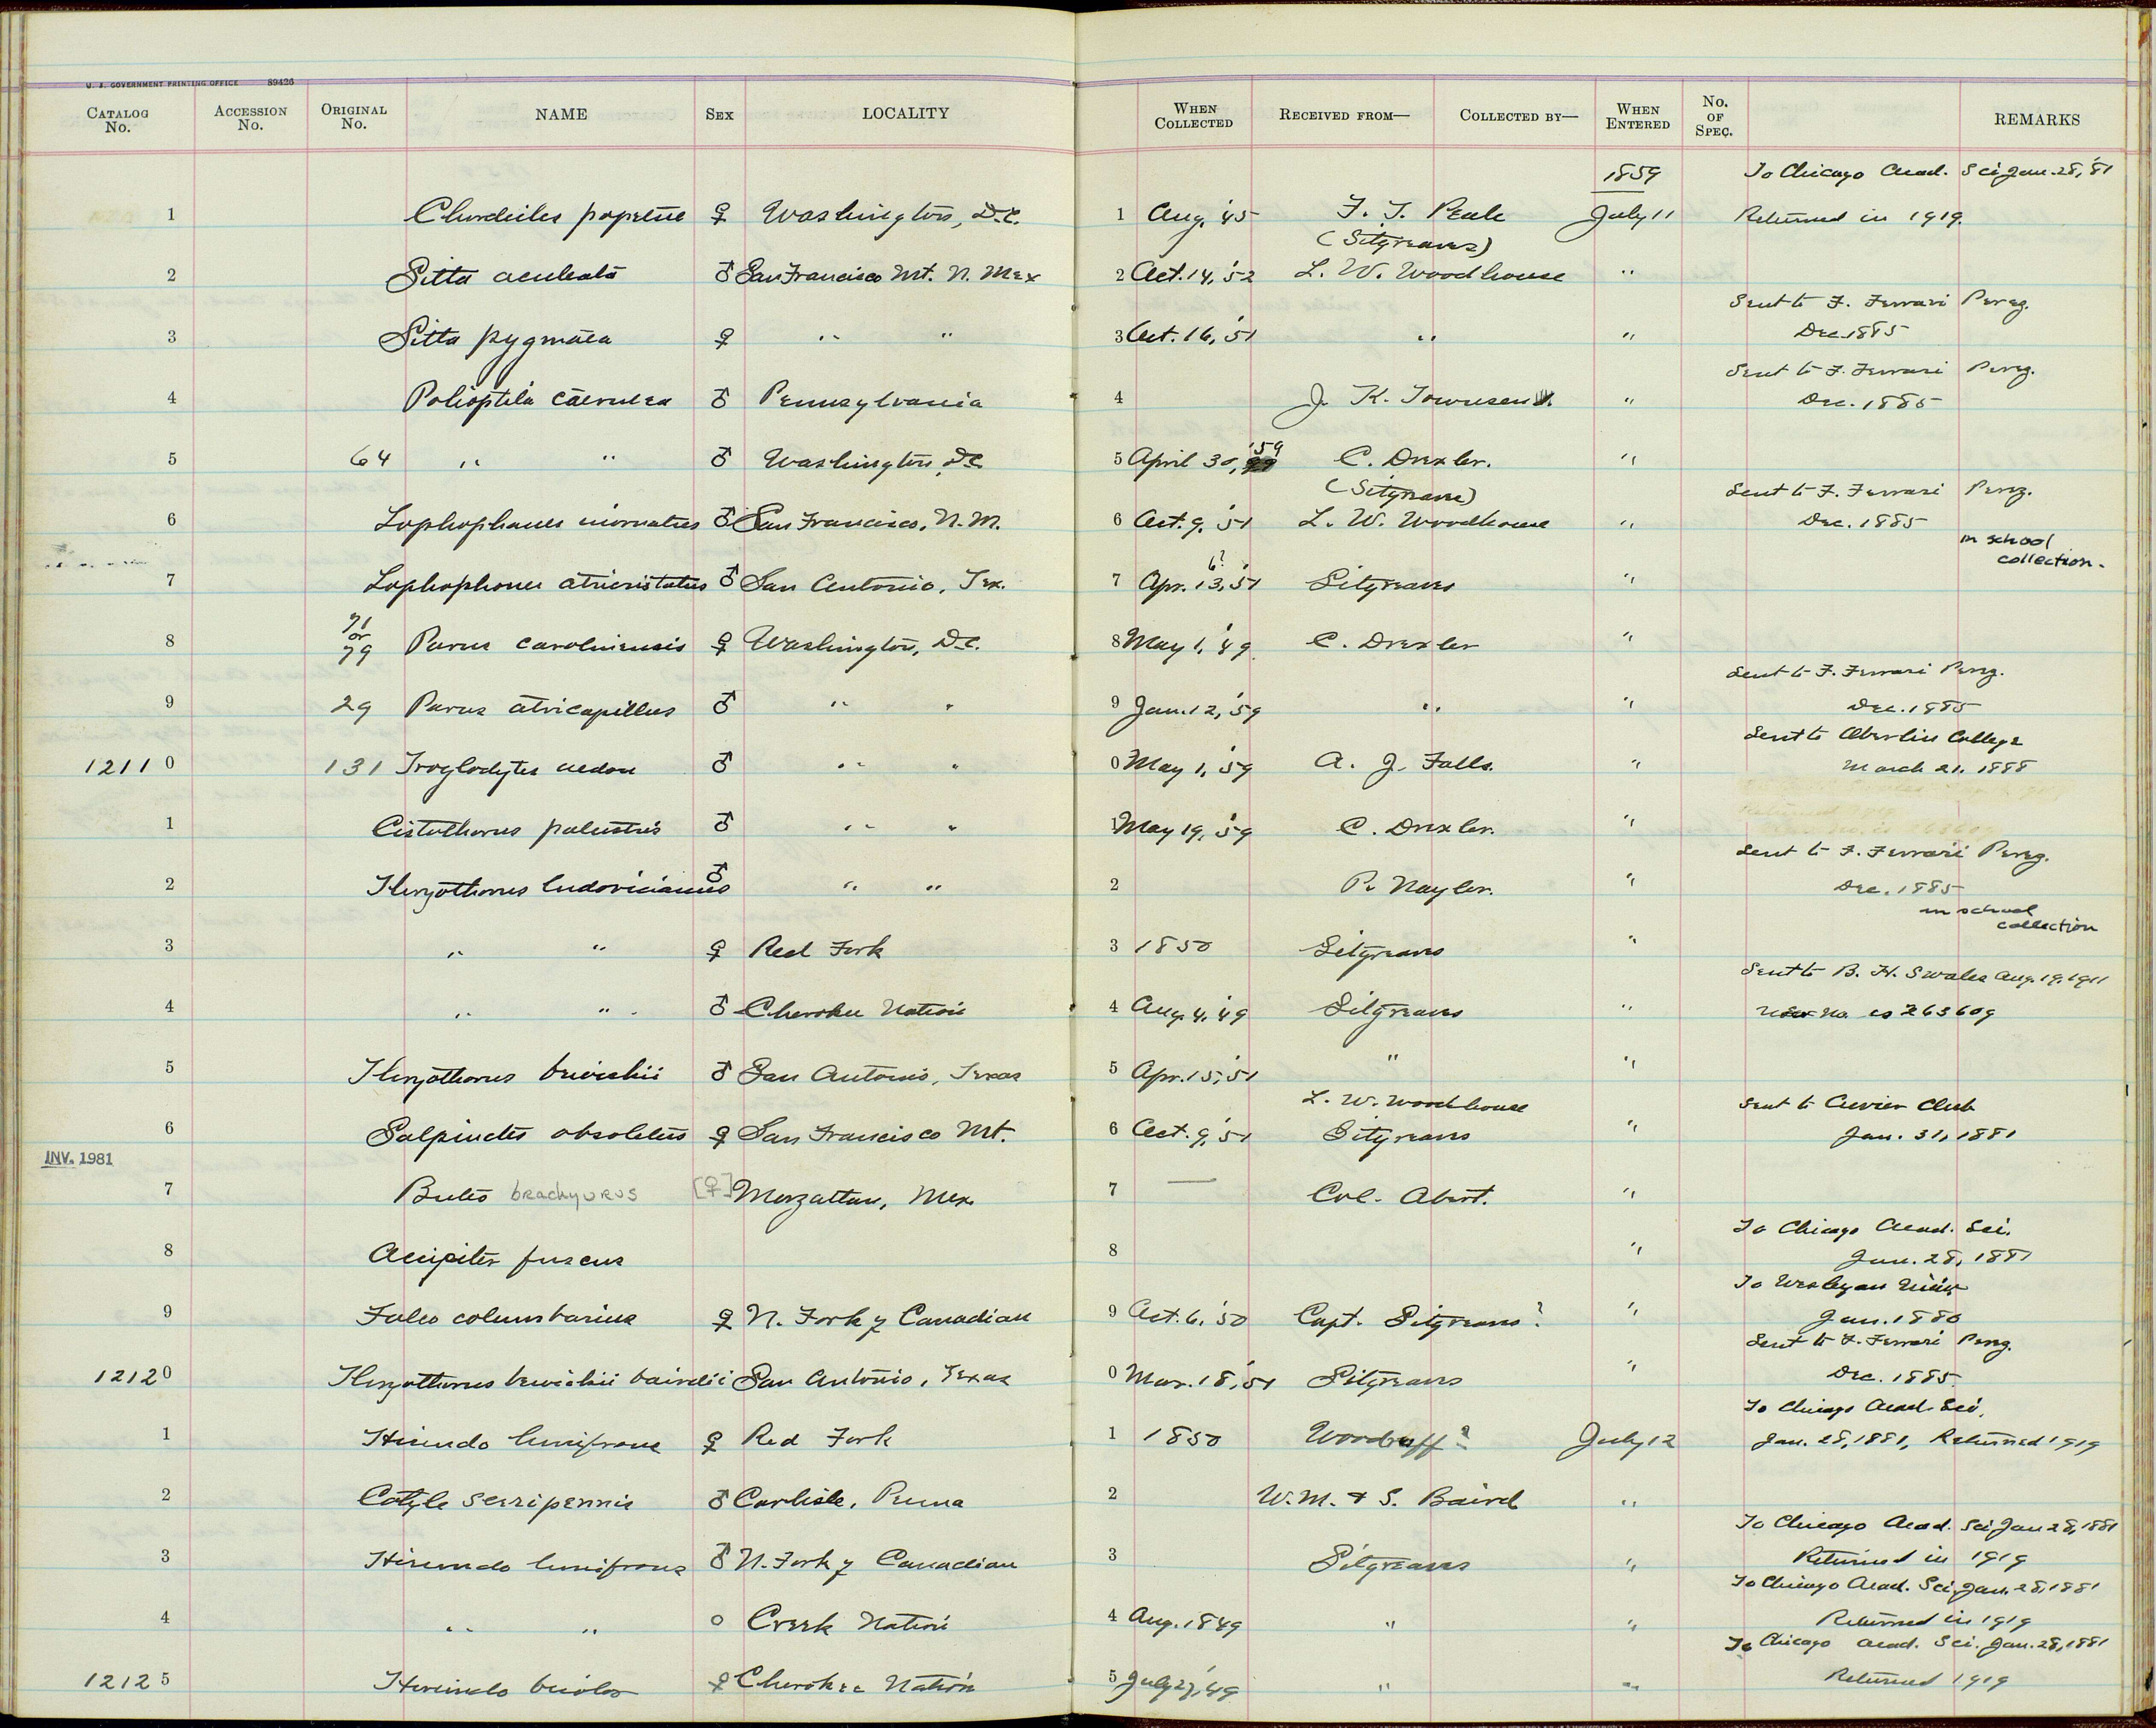 U. S. GOVERNMENT PRINTING OFFICE 89426
CATALOG No. ACCESSION No. ORIGINAL No. NAME SEX LOCALITY WHEN COLLECTED RECEIVED FROM— COLLECTED BY— WHEN ENTERED No. OF SPEC. REMARKS
1859 To Chicago Acad. Sci Jan. 28, '81
1 Chordeiles popetue ♀ Washington, D.C. 1 Aug. '45 Peale July 11 Returned in 1919.
(Sitgreaves)
2 Sitta aculeata ♂ San Francisco Mt. N. Mex 2 Oct. 14, '52 L. W. Woodhouse "
Sent to F. Ferrari Perez.
3 Sitta pygmaea ♀ " " 3 Oct. 16, '51 " " Dec. 1885
Sent to F. Ferrari Perez.
4 Polioptila caerulea ♂ Pennsylvania 4 J. K. Townsend. " Dec. 1885
5 64 " " ♂ Washington, D.C. 5 April 30, '59 C. Drexler. "
(Sitgreaves) Sent to F. Ferrari Perez.
6 Lophophanes inornatus ♂ San Francisco, N.M. 6 Oct. 9, '51 L. W. Woodhouse " Dec. 1885
in school
collection.
6?
7 Lophophanes atricristatus ♂ San Antonio, Tex. 7 Apr. 13, '51 Sitgreaves "
71
or
8 79 Parus carolinensis ♀ Washington, D.C. 8 May 1, '49 C. Drexler "
Sent to F. Ferrari Perez.
9 29 Parus atricapillus ♂ " " 9 Jan. 12, '59 " " Dec. 1885
Sent to Oberlin College
12110 131 Troglodytes aedon ♂ " " 0 May 1, '59 A. J. Falls. " March 21, 1888
1 Cistothorus palustris ♂ " " May 19, '59 C. Drexler. "
Sent to F. Ferrari Perez.
2 Thryothorus ludovicianus ♂ " " 2 P. Naylor. " Dec. 1885
in school
collection
3 " " ♀ Red Fork 3 1850 Sitgreaves "
Sent to B. H. Swales Aug. 19, 1911
4 " " ♂ Cherokee Nation 4 Aug. 4, '49 Sitgreaves " No. is 263609
5 Thryothorus bewickii ♂ San Antonio, Texas 5 Apr. 15, '51 " "
L. W. Woodhouse Sent to Cuvier Club
6 Salpinctes obsoletus ♀ San Francisco Mt. 6 Oct. 9, '51 Sitgreaves " Jan. 31, 1881
INV. 1981
7 Buteo brachyurus [♀] Mozattan, Mex. 7 — Col. Abert. "
To Chicago Acad. Sci.
8 Accipiter fuscus 8 " Jan. 28, 1881
To Wesleyan Univ.
9 Falco columbarius ♀ N. Fork of Canadian 9 Oct. 6, '50 Capt. Sitgreaves? " Jan. 1880
Sent to F. Ferrari Perez.
12120 Thryothorus bewickii bairdii San Antonio, Texas 0 Mar. 18, '51 Sitgreaves " Dec. 1885.
To Chicago Acad. Sci.
1 Hirundo lunifrons ♀ Red Fork 1 1850 Woodruff? July 12 Jan. 28, 1881, Returned 1919
2 Cotyle serripennis ♂ Carlisle, Penna 2 W. M. & S. Baird "
To Chicago Acad. Sci Jan 28, 1881
3 Hirundo lunifrons ♂ N. Fork of Canadian 3 Sitgreaves " Returned in 1919
To Chicago Acad. Sci. Jan. 28, 1881
4 " " o Creek Nation 4 Aug. 1849 " " Returned in 1919
To Chicago Acad. Sci. Jan. 28, 1881
12125 Hirundo bicolor ♀ Cherokee Nation 5 July 27, '49 " " Returned 1919